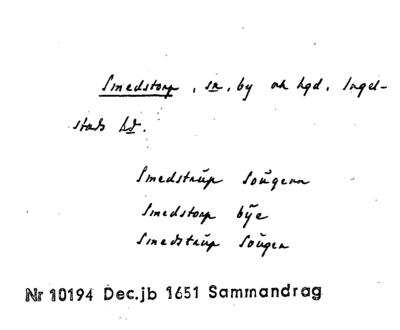 Smedstorp, sn, by och hgd, Ingel-
stads hd.
Smedstrŭp Soŭgenn
Smedstorp bÿe
Smedstrŭp Soŭgen
Nr 10194 Dec.jb 1651 Sammandrag